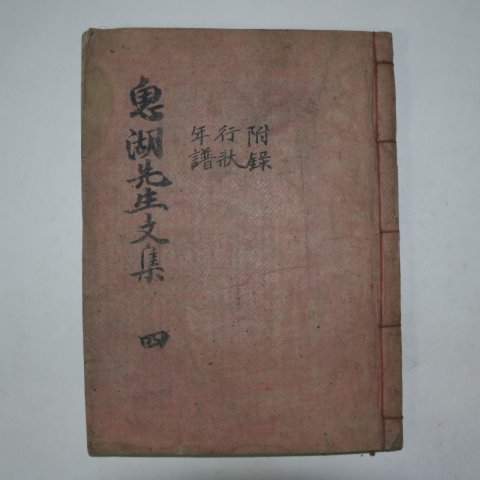 附錄
行狀
年譜
湖先生文集 四